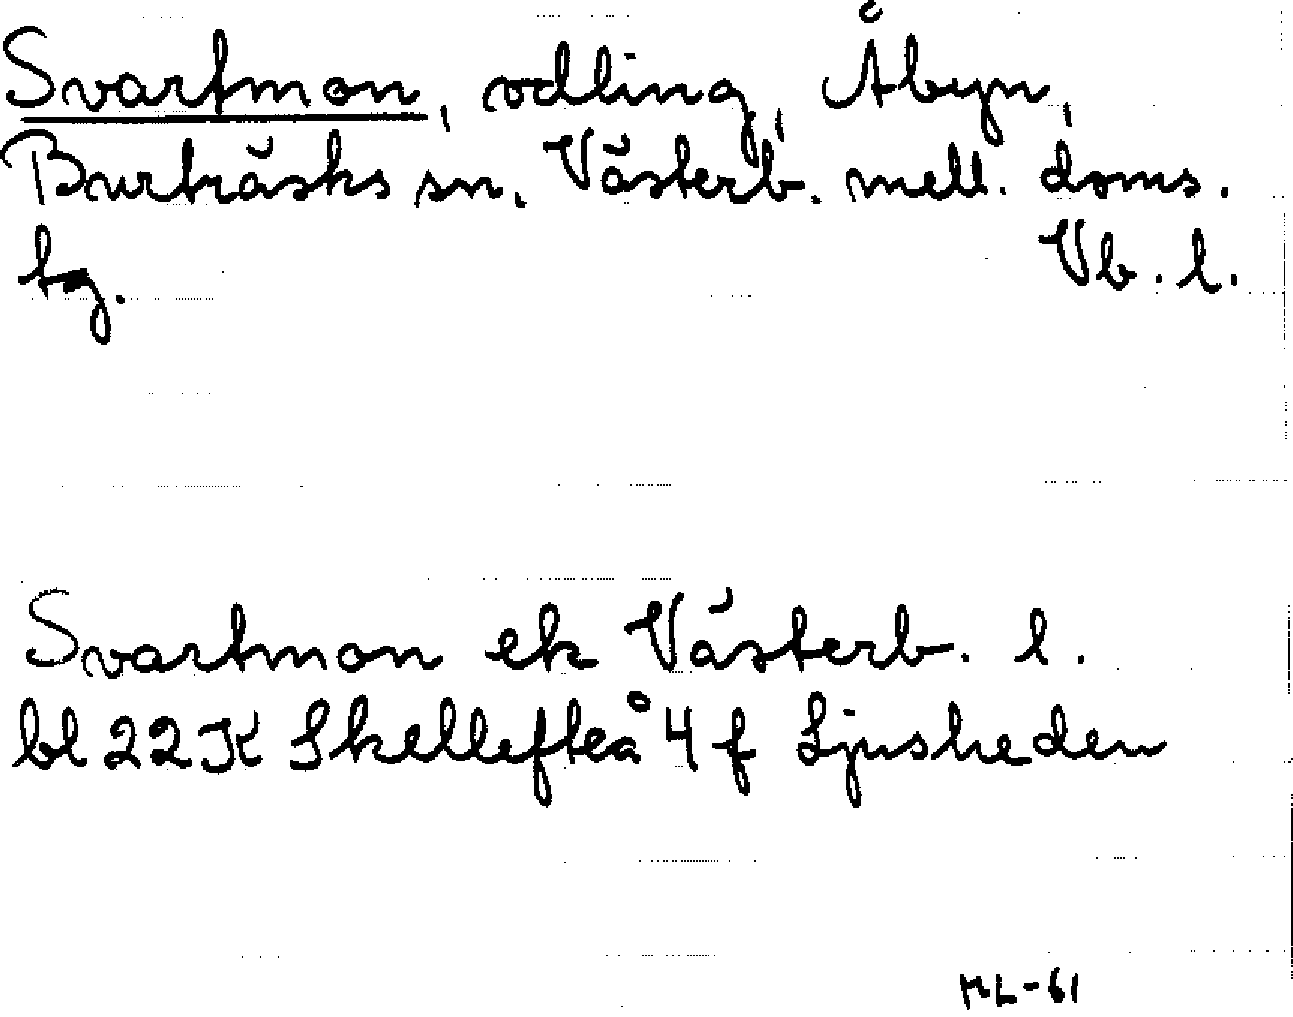 Svartmon, odling, Åbyn,
Burträsks sn. Västerb. mell. doms.
tg. Vb. l.
Svartmon ek Västerb. l.
bl 22K Skellefteå 4 f Ljusheden
ML-61